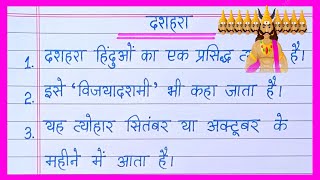 दशहरा
1. दशहरा हिंदुओं का एक प्रसिद्ध है।
2. इसे 'विजयादशमी' भी कहा जाता है।
3. यह त्योहार सितंबर या अक्टूबर के
महीने में आता है।